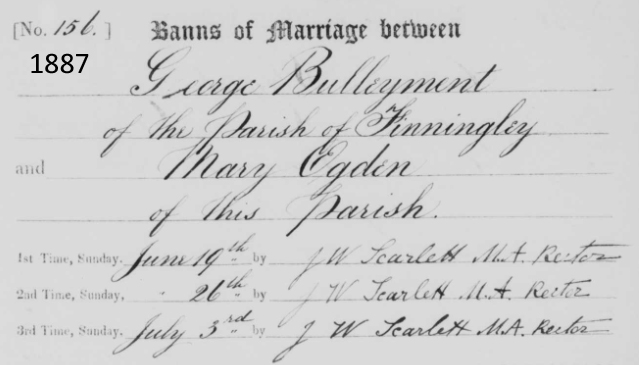 [No. 156.] Banns of Marriage between
1887
George Bulleyment
of the Parish of Finningley
and Mary Ogden
of this Parish.
1st Time, Sunday, June 19th by J W Scarlett M.A. Rector
2nd Time, Sunday, " 26th by J W Scarlett M.A. Rector
3rd Time, Sunday, July 3rd by J W Scarlett M.A. Rector